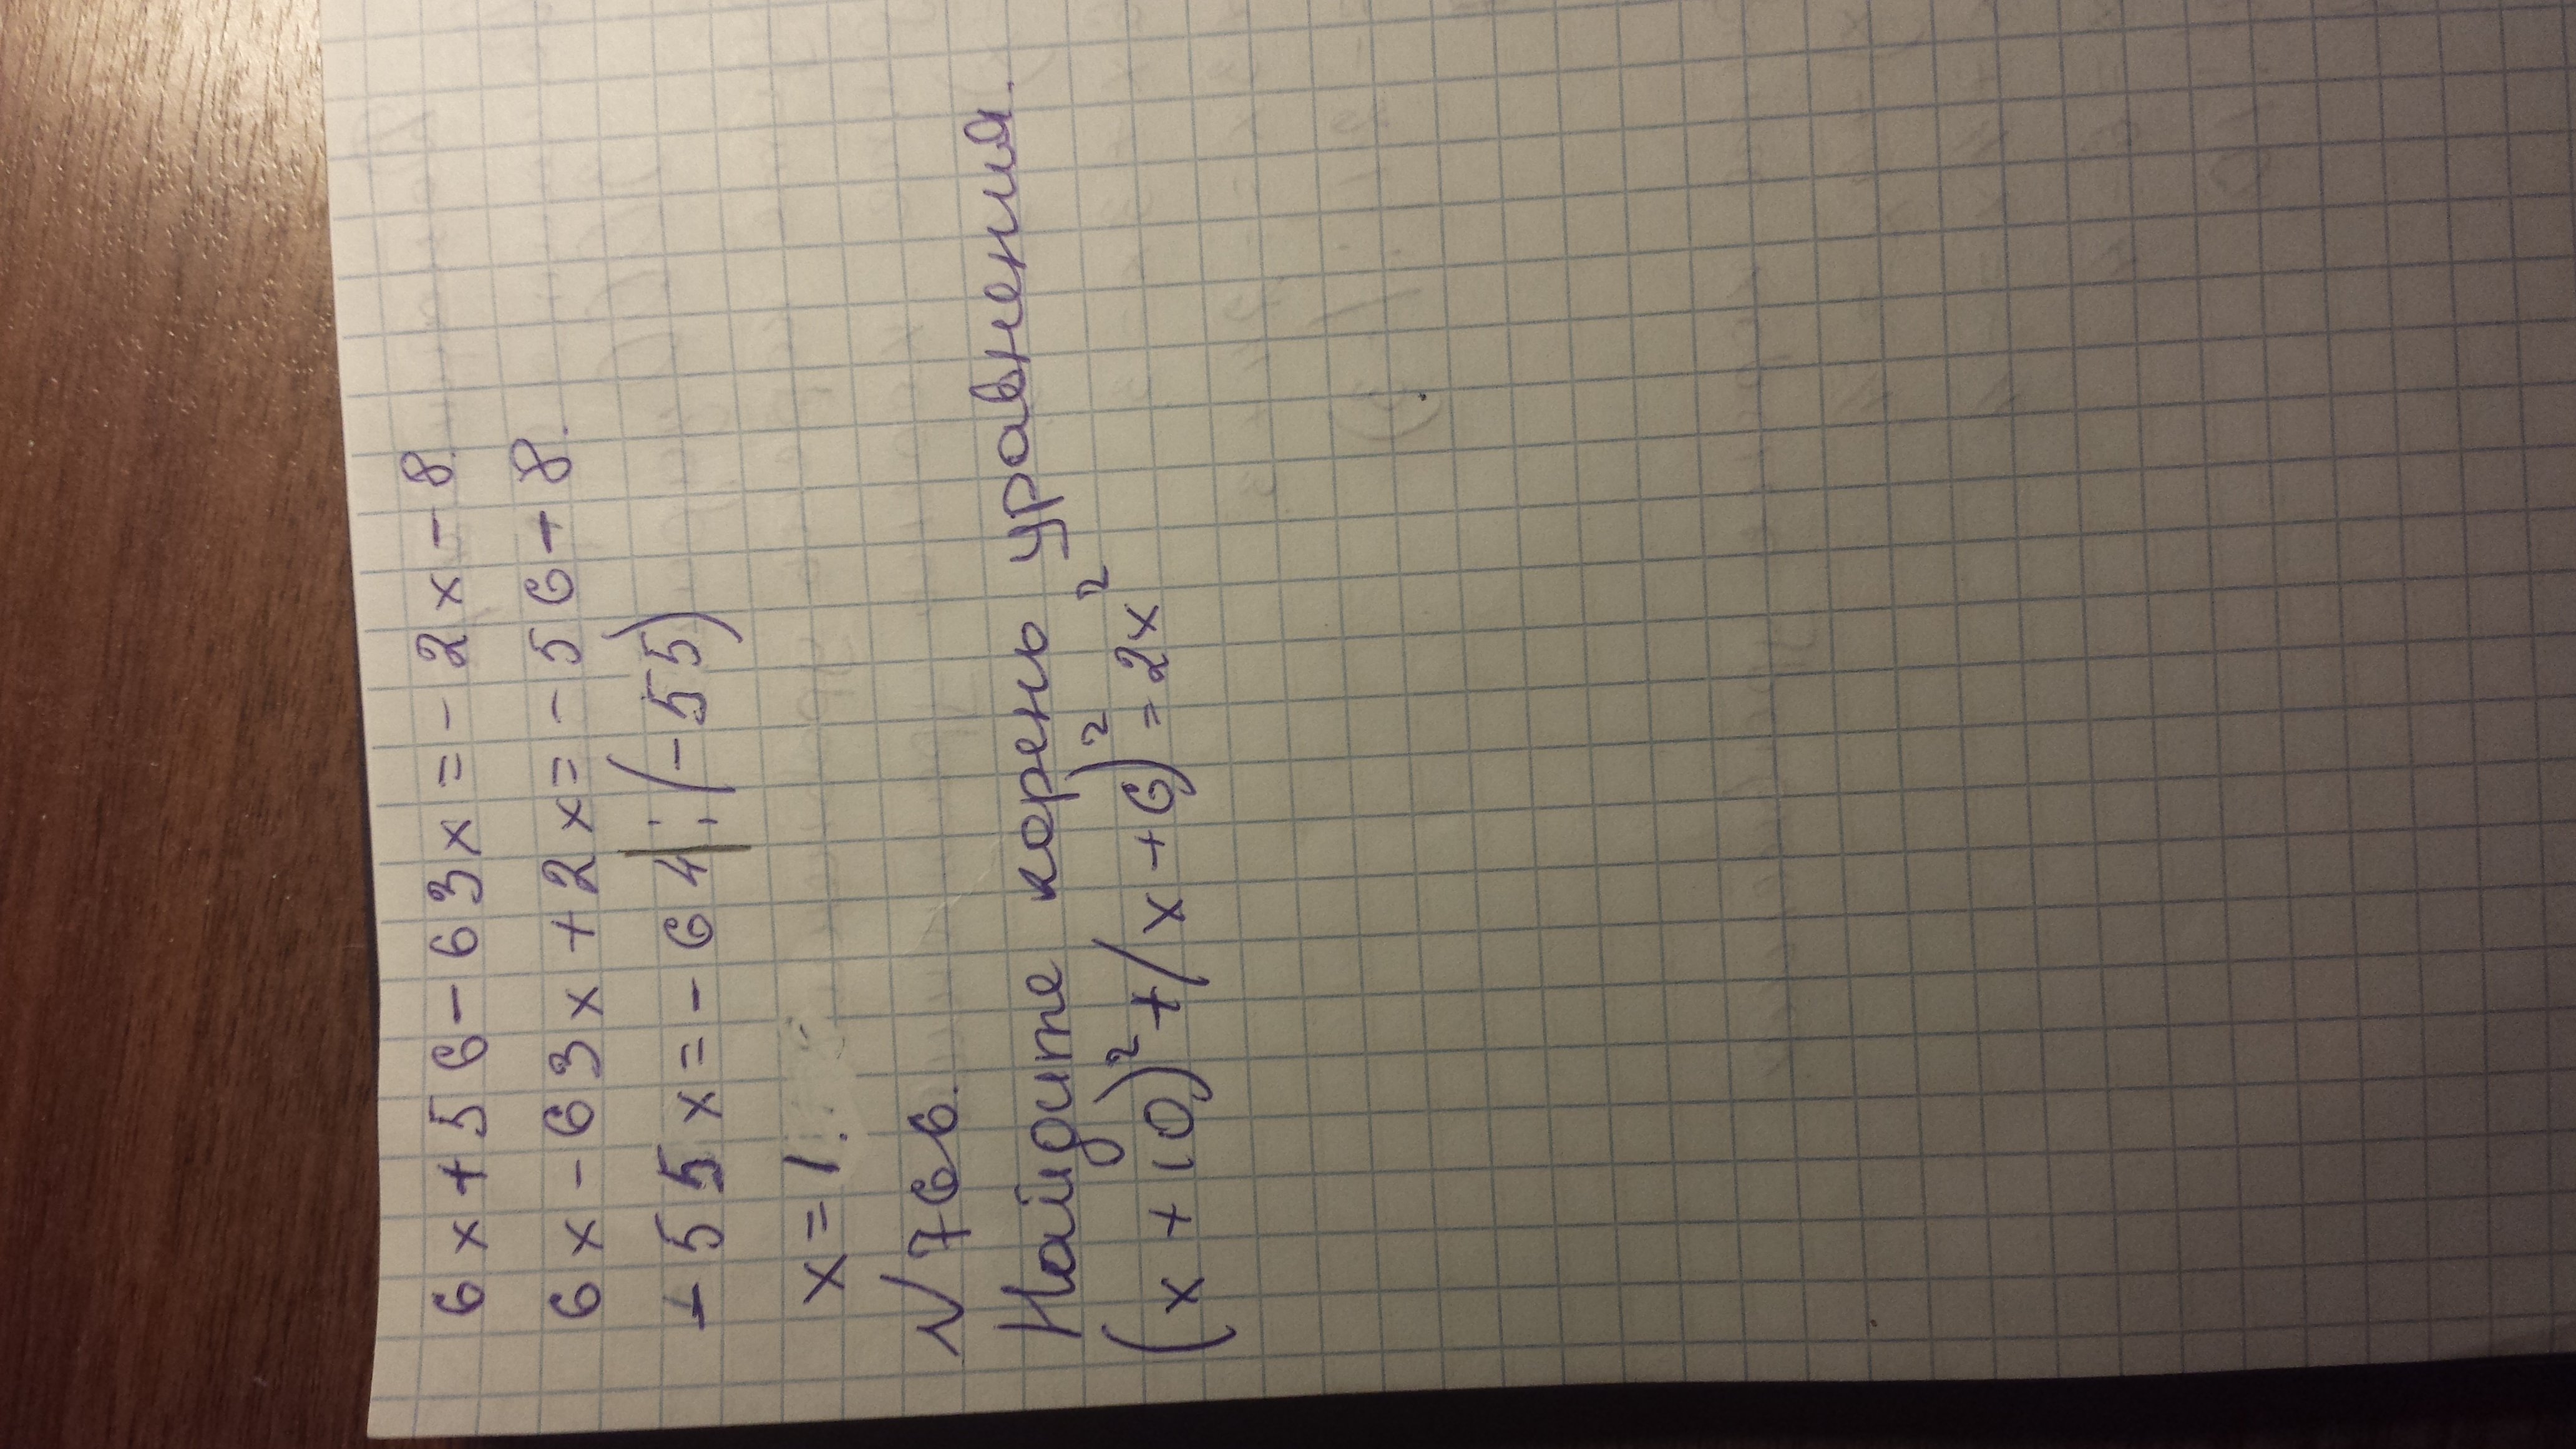 6x+56-63x=-2x-8.
6x-63x+2x=-56-8.
-55x=-64|:(-55)
x=1.
№766.
Найдите корень уравнения.
(x+10)²+(x+6)²=2x²